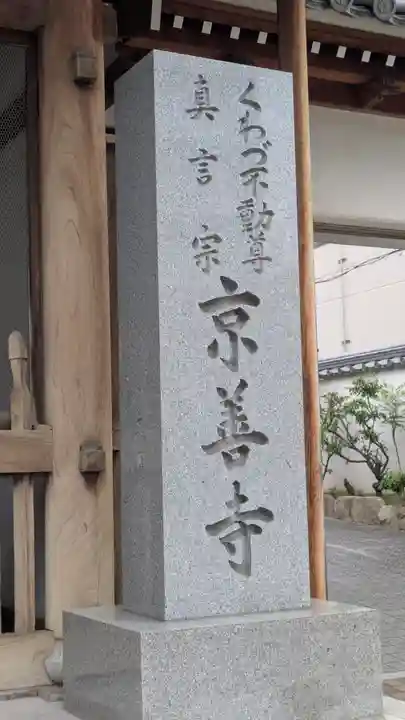 くわづ不動尊
真言宗
京善寺